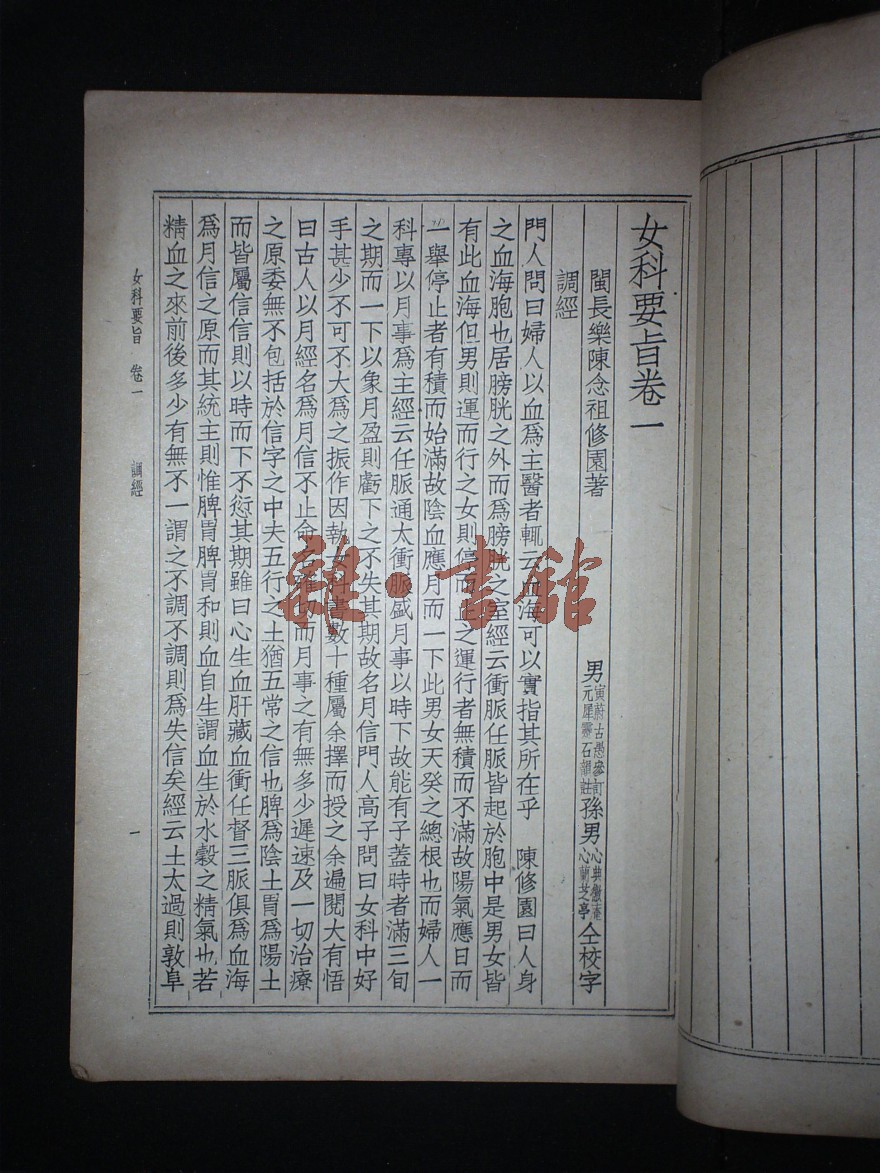 女科要旨卷一
閩長樂陳念祖修園著 男 寅蔚古愚參訂 元犀靈石韻註 孫男 心典徽庵 心蘭芝亭 仝校字
調經
門人問曰婦人以血爲主醫者輒云血海可以實指其所在乎 陳修園曰人身
之血海胞也居膀胱之外而爲膀胱之室經云衝脈任脈皆起於胞中是男女皆
有此血海但男則運而行之女則停而止之運行者無積而不滿故陽氣應日而
一舉停止者有積而始滿故陰血應月而一下此男女天癸之總根也而婦人一
科專以月事爲主經云任脈通太衝脈盛月事以時下故能有子蓋時者滿三旬
之期而一下以象月盈則虧下之不失其期故名月信門人高子問曰女科中好
手甚少不可不大爲之振作因執女科書數十種屬余擇而授之余遍閱大有悟
曰古人以月經名爲月信不止命名雖切而月事之有無多少遲速及一切治療
之原委無不包括於信字之中夫五行之土猶五常之信也脾爲陰土胃爲陽土
而皆屬信信則以時而下不愆其期雖曰心生血肝藏血衝任督三脈俱爲血海
爲月信之原而其統主則惟脾胃脾胃和則血自生謂血生於水穀之精氣也若
精血之來前後多少有無不一謂之不調不調則爲失信矣經云土太過則敦阜
女科要旨 卷一 調經 一
雜·書館